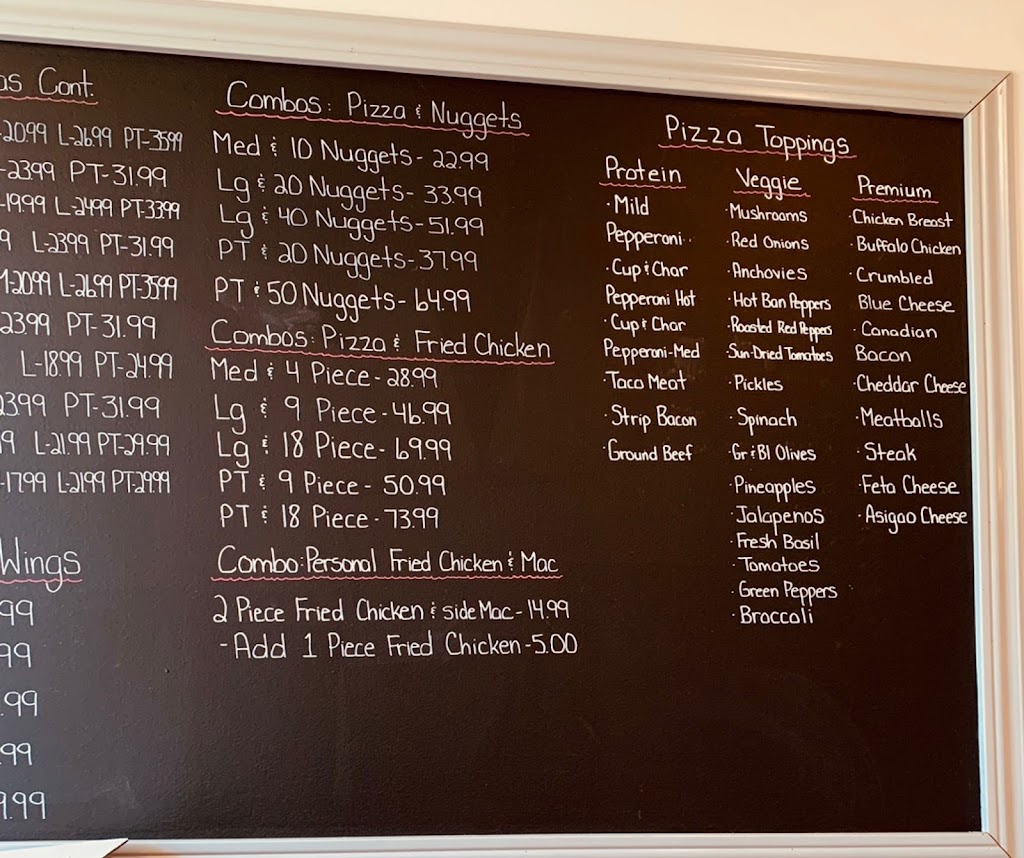 as Cont.
-20.99 L-26.99 PT-35.99
-23.99 PT-31.99
-19.99 L-24.99 PT-33.99
9 L-23.99 PT-31.99
M-20.99 L-26.99 PT-35.99
23.99 PT-31.99
L-18.99 PT-24.99
23.99 PT-31.99
9 L-21.99 PT-29.99
-17.99 L-21.99 PT-29.99
Wings
99
99
.99
99
9.99
Combos: Pizza & Nuggets
Med & 10 Nuggets - 22.99
Lg & 20 Nuggets - 33.99
Lg & 40 Nuggets - 51.99
PT & 20 Nuggets - 37.99
PT & 50 Nuggets - 64.99
Combos: Pizza & Fried Chicken
Med & 4 Piece - 28.99
Lg & 9 Piece - 46.99
Lg & 18 Piece - 69.99
PT & 9 Piece - 50.99
PT & 18 Piece - 73.99
Combo: Personal Fried Chicken & Mac
2 Piece Fried Chicken & side Mac - 14.99
- Add 1 Piece Fried Chicken - 5.00
Pizza Toppings
Protein
· Mild
Pepperoni
· Cup & Char
Pepperoni Hot
· Cup & Char
Pepperoni-Med
· Taco Meat
· Strip Bacon
· Ground Beef
Veggie
· Mushrooms
· Red Onions
· Anchovies
· Hot Ban Peppers
· Roasted Red Peppers
· Sun-Dried Tomatoes
· Pickles
· Spinach
· Gr & Bl Olives
· Pineapples
· Jalapenos
· Fresh Basil
· Tomatoes
· Green Peppers
· Broccoli
Premium
· Chicken Breast
· Buffalo Chicken
· Crumbled
Blue Cheese
· Canadian
Bacon
· Cheddar Cheese
· Meatballs
· Steak
· Feta Cheese
· Asigao Cheese